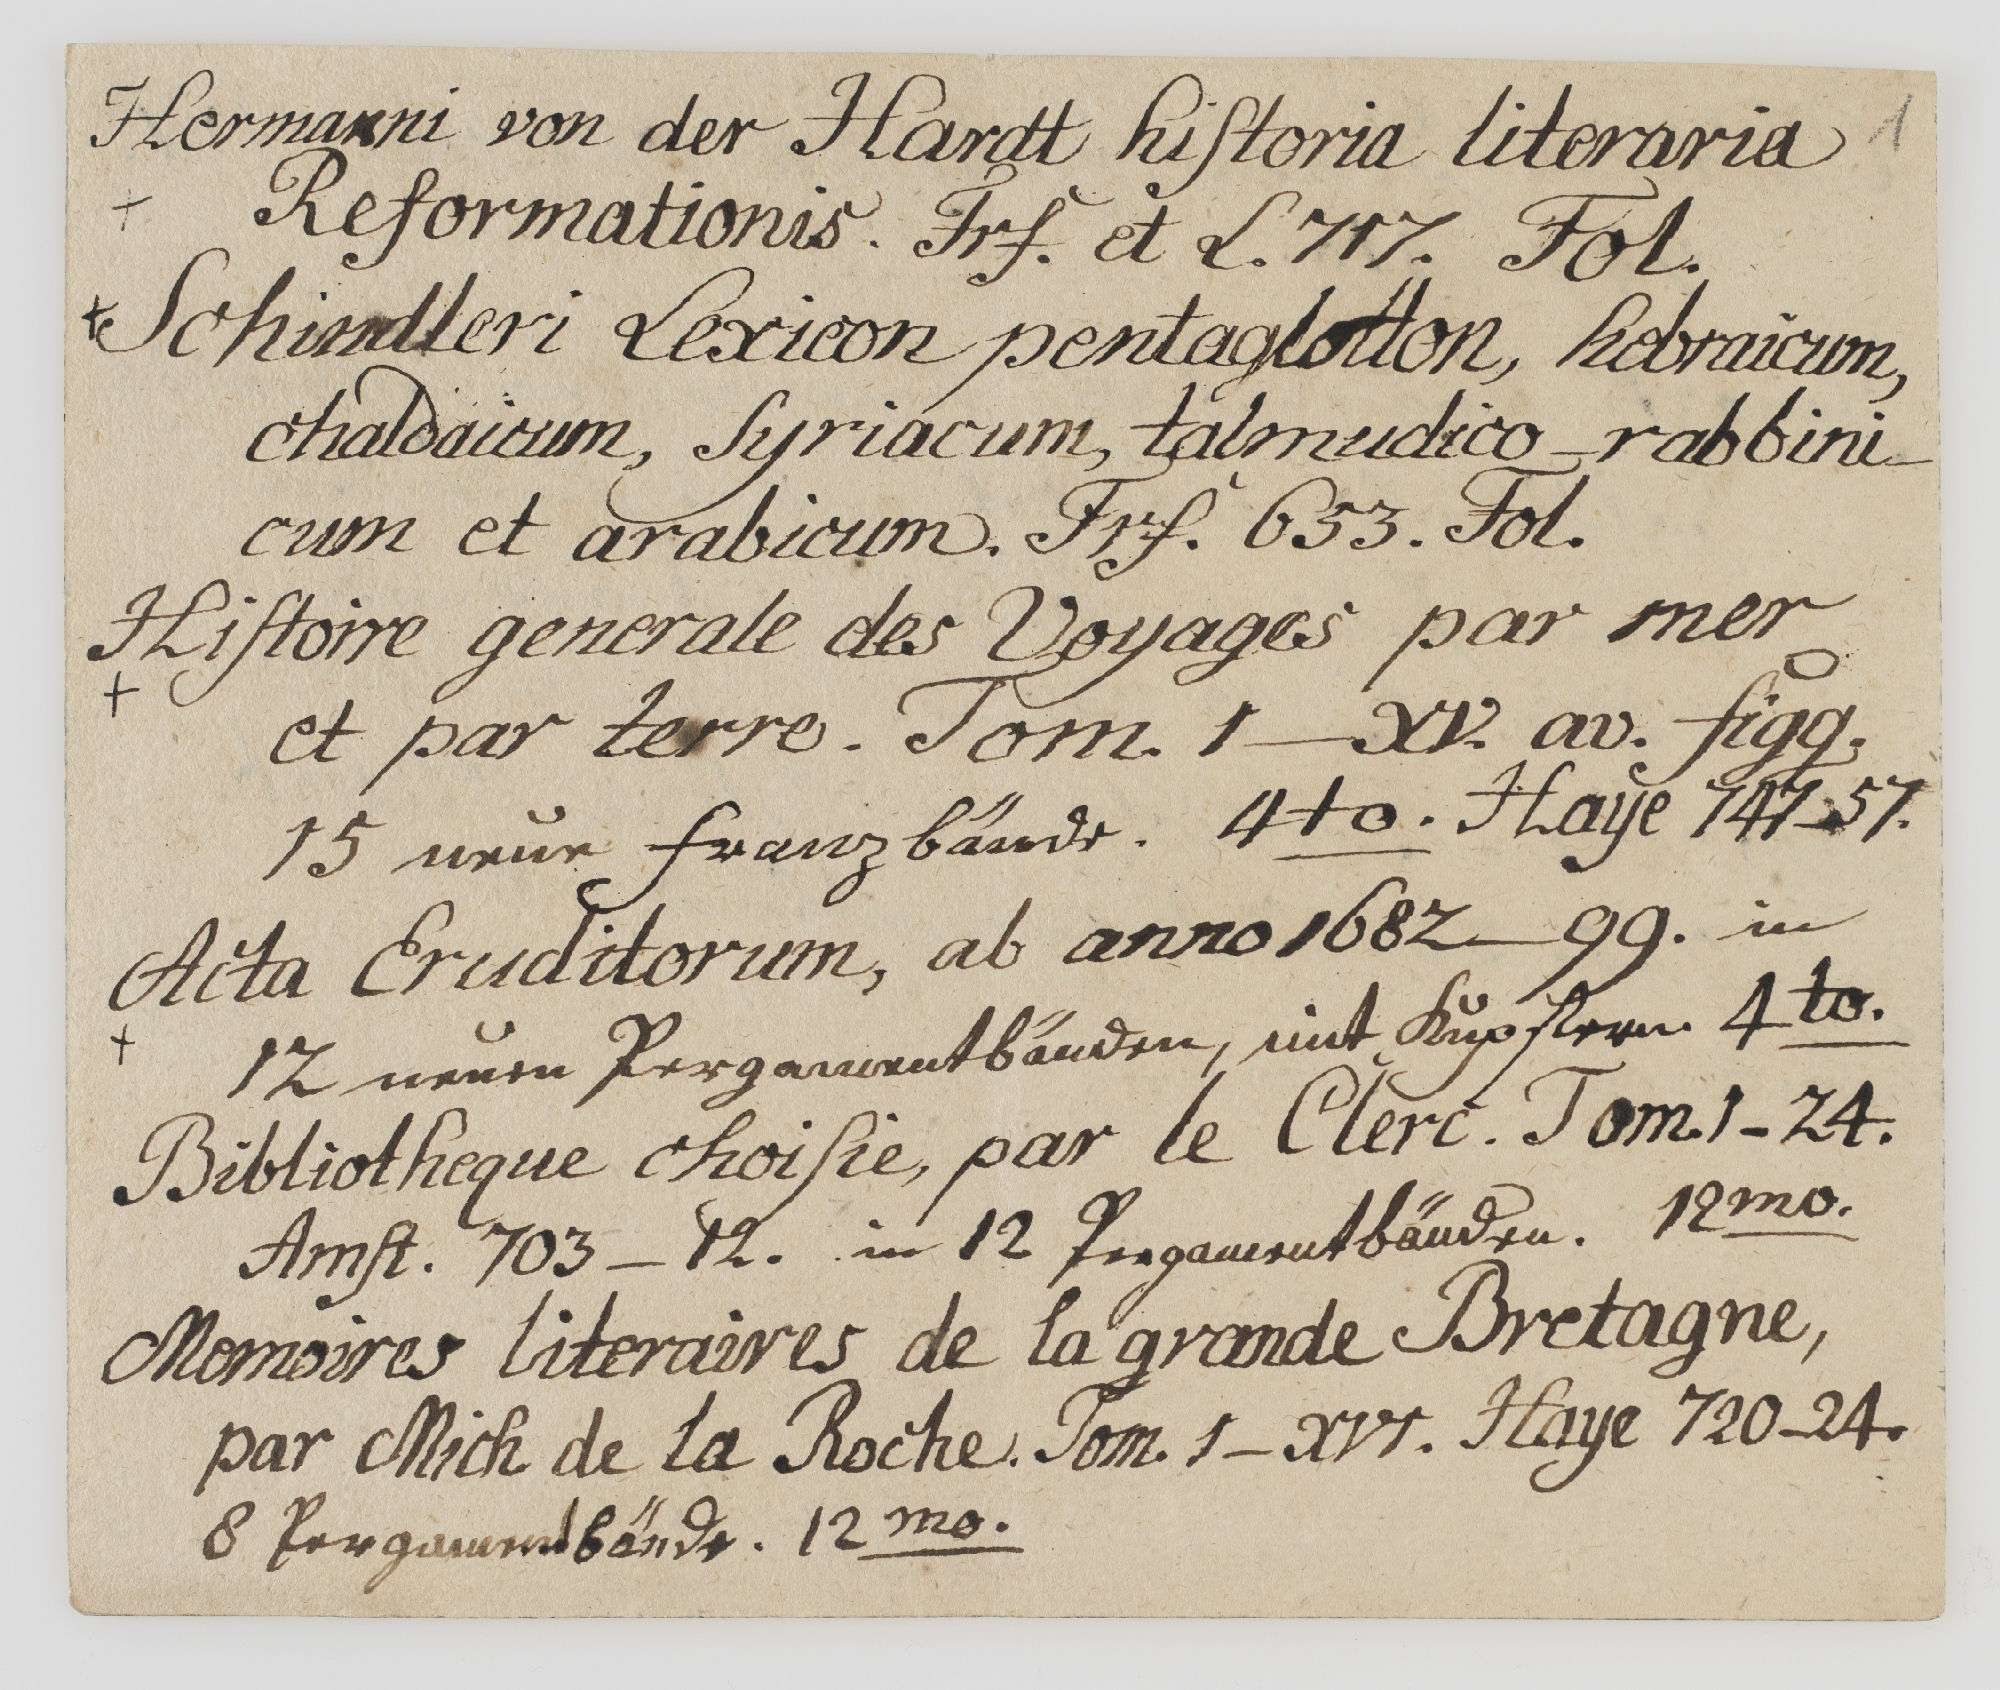 Hermanni von der Hardt hiſtoria literaria 1
+ Reformationis. Frf. et L. 717. Fol.
+ Schindleri Lexicon pentaglotton, hebraicum,
chaldaicum, Syriacum, talmudico-rabbini-
cum et arabicum. Frf. 653. Fol.
Hiſtoire generale des Voyages par mer
+ et par terre. Tom. 1 — XV. av. figg.
15 neue Franzbände. 4to. Haye 747-57.
Acta Eruditorum, ab anno 1682—99. in
+ 12 neuen Pergamentbänden, mit Kupfern 4to.
Bibliotheque choiſie, par le Clerc. Tom. 1-24.
Amſt. 703-12. in 12 Pergamentbänden. 12mo.
Memoires literaires de la grande Bretagne,
par Mich de la Roche. Tom. 1-XVI. Haye 720-24.
8 Pergamentbände. 12mo.